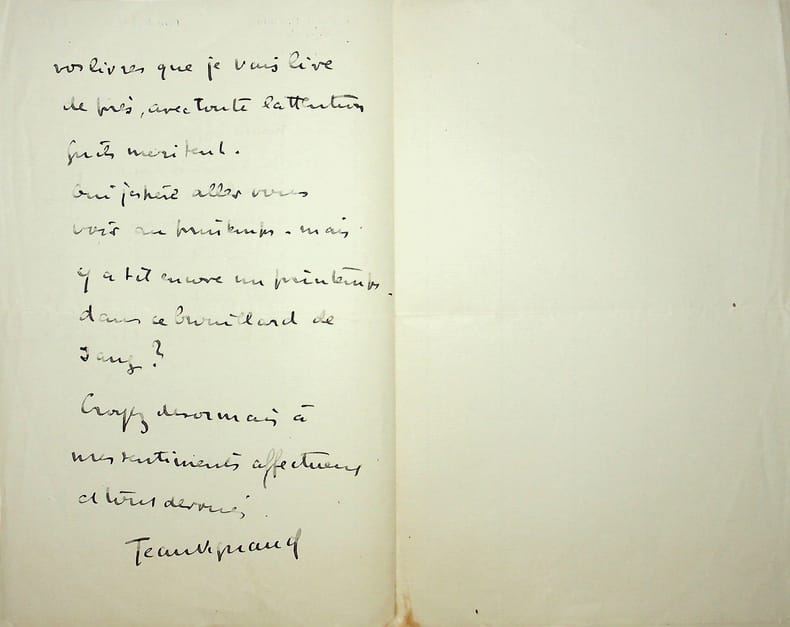 vos livres que je vais lire
de près, avec toute l'attention
qu'ils meritent.
Oui j'espère aller vous
voir au printemps - mais
y a t il encore un printemps
dans ce brouillard de
sang ?
Croyez desormais à
mes sentiments affectueux
et tout devoués
Jean Vignaud